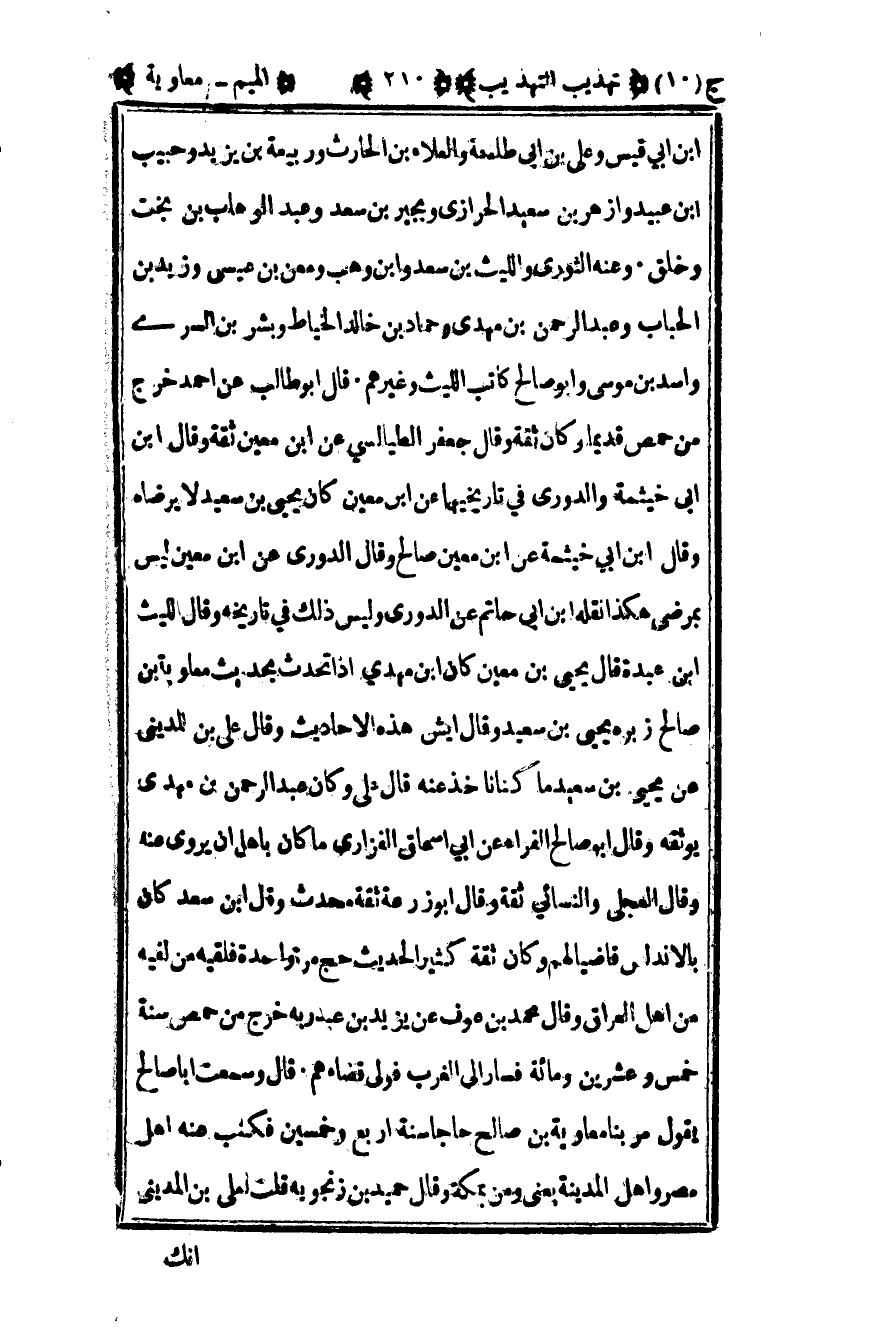 ج (١٠) تهذيب التهذيب ٢١٠ الميم - معاوية
ابن ابي قيس وعلي بن ابي طلحة والعلاء بن الحارث وربيعة بن يزيد وحبيب
ابن عبيد وازهر بن سعيد الحرازى وبحير بن سعد وعبد الوهاب بن بخت
وخلق ٠ وعنه الثورى والليث بن سعد وابن وهب ومعن بن عيسى وزيد بن
الحباب وعبد الرحمن بن مهدى وحماد بن خالد الخياط وبشر بن السرے
واسد بن موسى وابو صالح كاتب الليث وغيرهم ٠ قال ابو طالب عن احمد خرج
من حمص قديما وكان ثقة وقال جعفر الطيالسي عن ابن معين ثقة وقال ابن
ابى خيثمة والدورى في تاريخيهما عن ابن معين كان يحيى بن سعيد لا يرضاه
وقال ابن ابي خيثمة عن ابن معين صالح وقال الدورى عن ابن معين ليس
بمرضى هكذا نقله ابن ابى حاتم عن الدورى وليس ذلك في تاريخه وقال الليث
ابن عبدة قال يحيى بن معين كان ابن مهدي اذا تحدث بحديث معاوية بن
صالح زبره يحيى بن سعيد وقال ايش هذه الاحاديث وقال علي بن المدينى
عن يحيى بن سعيد ما كنا ناخذ عنه قال علي وكان عبد الرحمن بن مهدى
يوثقه وقال ابو صالح الفراء عن ابي اسحاق الفزاري ما كان باهل ان يروى عنه
وقال العجلى والنسائي ثقة وقال ابو زرعة ثقة محدث وقال ابن سعد كان
بالاندلس قاضيا لهم وكان ثقة كثير الحديث حج مرة واحدة فلقيه من لقيه
من اهل العراق وقال محمد بن عوف عن يزيد بن عبد ربه خرج من حمص سنة
خمس وعشرين ومائة فسار الى الغرب فولى قضاءهم ٠ قال وسمعت ابا صالح
يقول مر بنا معاوية بن صالح حاجا سنة اربع وخمسين فكتب عنه اهل
مصر واهل المدينة يعنى ومن بمكة وقال حميد بن زنجويه قلت لعلى بن المدينى
انك